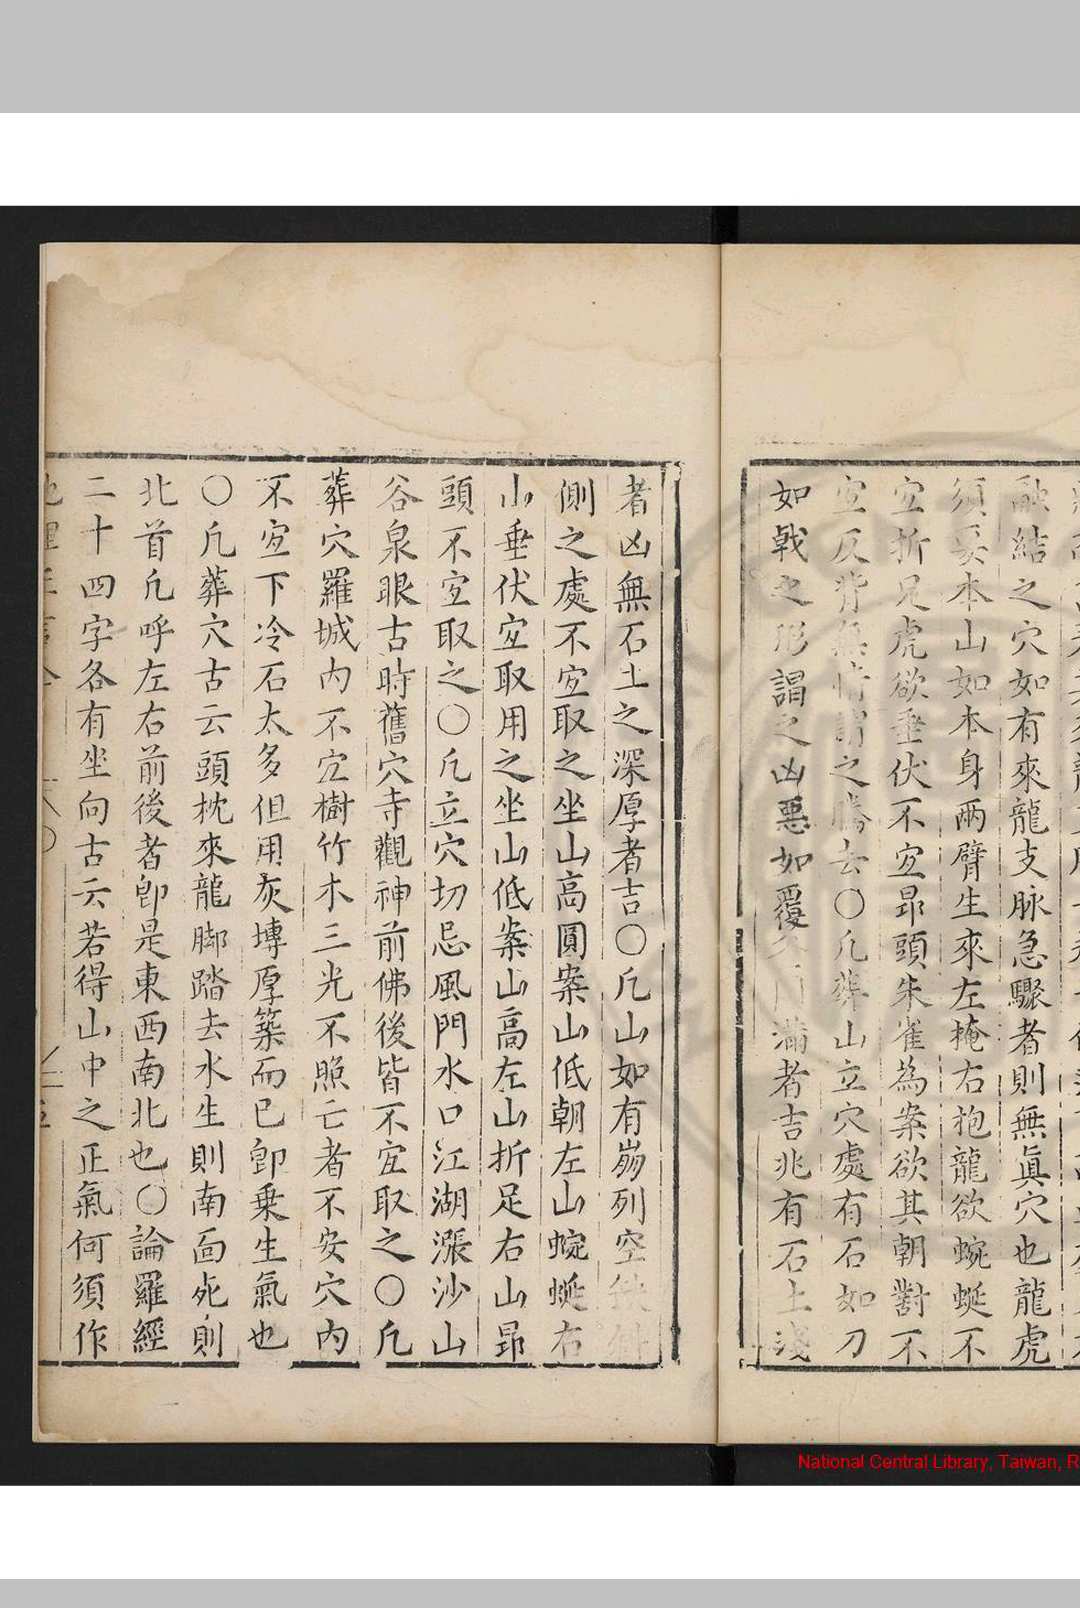 融結之穴如有來龍支脉急驟者則無眞穴也龍虎
須要本山如本身兩臂生來左掩右抱龍欲蜿蜒不
宜折足虎欲垂伏不宜昻頭朱雀為案欲其朝對不
宜反背無情謂之騰去〇凢葬山立穴處有石如刀
如戟之形謂之凶惡如覆 滿者吉兆有石土淺
者凶無石土之深厚者吉〇凢山如有崩列空缺
側之處不宜取之坐山高圓案山低朝左山蜿蜒右
山垂伏宜取用之坐山低案山高左山折足右山昻
頭不宜取之〇凢立穴切忌風門水口江湖漲沙山
谷泉眼古時舊穴寺觀神前佛後皆不宜取之〇凢
葬穴羅城內不宜樹竹木三光不照亡者不安穴內
不宜下冷石太多但用灰塼厚築而已卽乗生氣也
〇凢葬穴古云頭枕來龍脚踏去水生則南面死則
北首凢呼左右前後者卽是東西南北也〇論羅經
二十四字各有坐向古云若得山中之正氣何須作
National Central Library, Taiwan, R